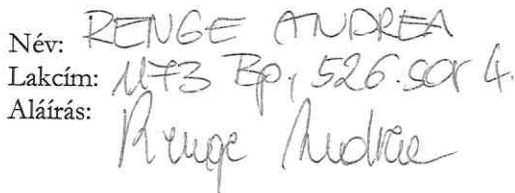 Név: RENGE ANDREA
Lakcím: 1173 Bp, 526. sor 4.
Aláírás: Renge Andrea